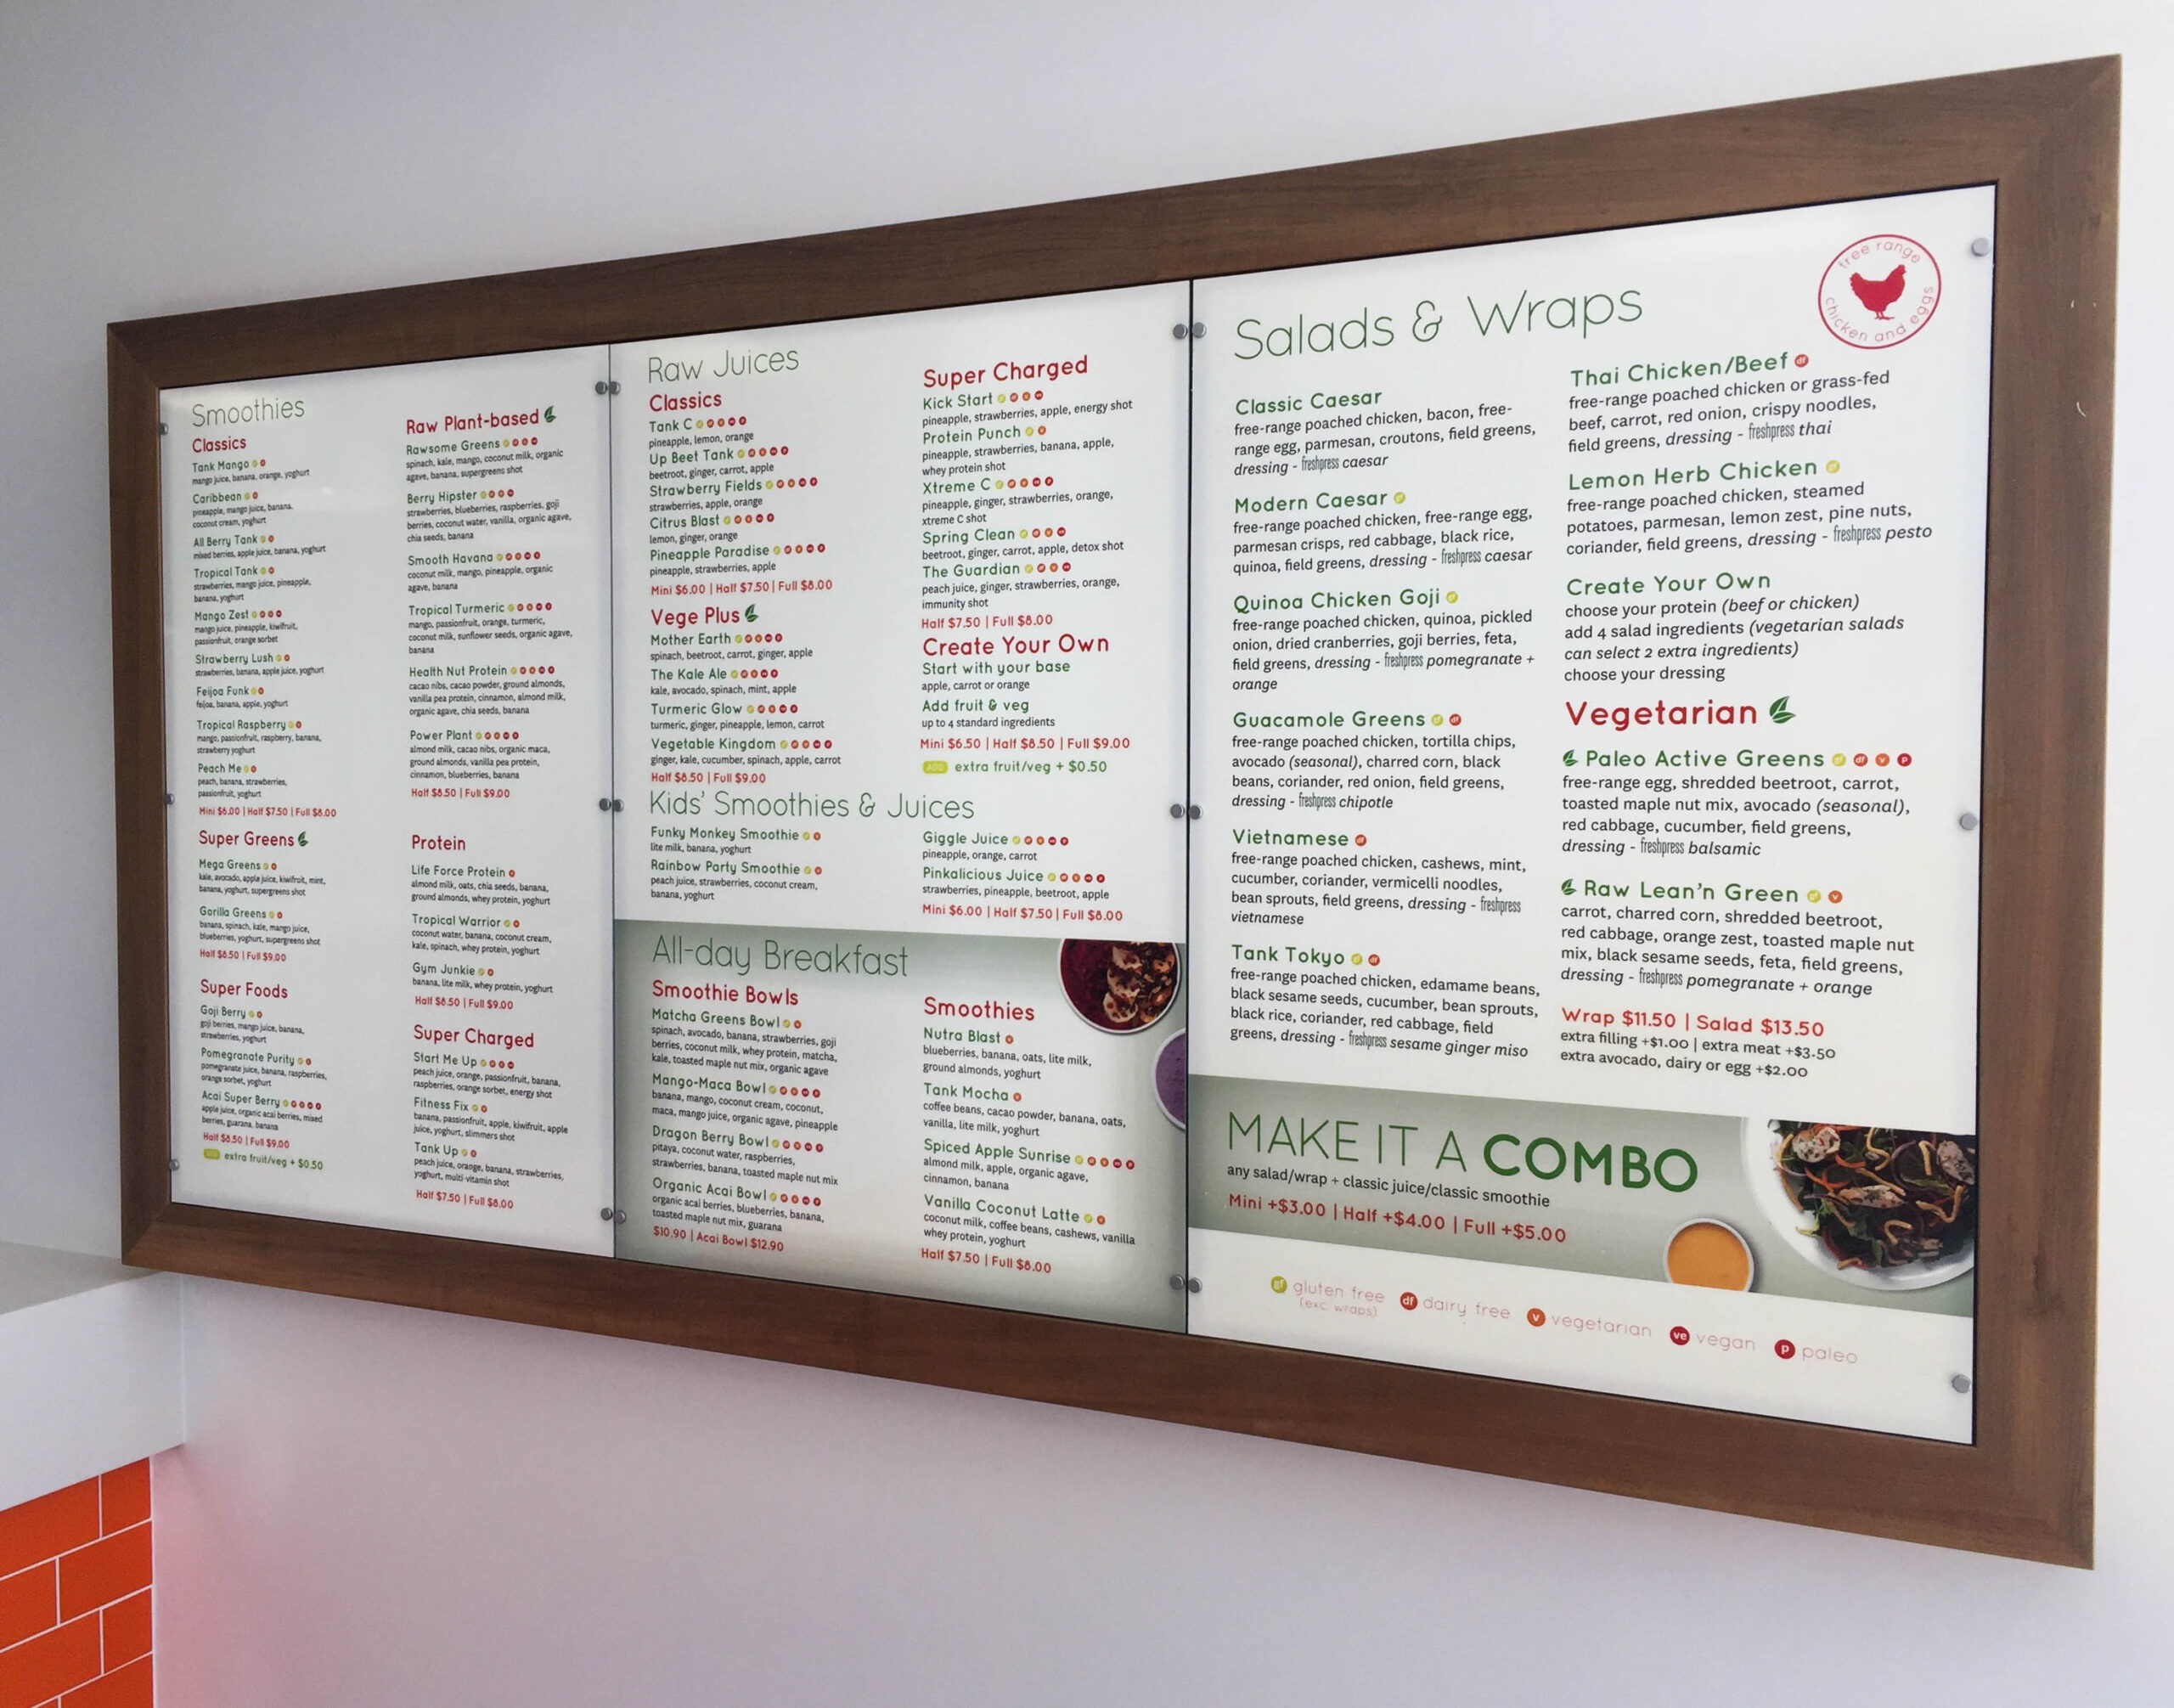 Smoothies
Classics
Tank Mango
mango juice, banana, orange, yoghurt
Caribbean
pineapple, mango juice, banana,
coconut cream, yoghurt
All Berry Tank
mixed berries, apple juice, banana, yoghurt
Tropical Tank
strawberries, mango juice, pineapple,
banana, yoghurt
Mango Zest
mango juice, pineapple, kiwifruit,
passionfruit, orange sorbet
Strawberry Lush
strawberries, banana, apple juice, yoghurt
Feijoa Funk
feijoa, banana, apple, yoghurt
Tropical Raspberry
mango, passionfruit, raspberry, banana,
strawberry yoghurt
Peach Me
peach, banana, strawberries,
passionfruit, yoghurt
Mini $6.00 | Half $7.50 | Full $8.00
Super Greens
Mega Greens
kale, avocado, apple juice, kiwifruit, mint,
banana, yoghurt, supergreens shot
Gorilla Greens
banana, spinach, kale, mango juice,
blueberries, yoghurt, supergreens shot
Half $8.50 | Full $9.00
Super Foods
Goji Berry
goji berries, mango juice, banana,
strawberries, yoghurt
Pomegranate Purity
pomegranate juice, banana, raspberries,
orange sorbet, yoghurt
Acai Super Berry
apple juice, organic acai berries, mixed
berries, guarana, banana
Half $8.50 | Full $9.00
ADD extra fruit/veg + $0.50
Raw Plant-based
Rawsome Greens
spinach, kale, mango, coconut milk, organic
agave, banana, supergreens shot
Berry Hipster
strawberries, blueberries, raspberries, goji
berries, coconut water, vanilla, organic agave,
chia seeds, banana
Smooth Havana
coconut milk, mango, pineapple, organic
agave, banana
Tropical Turmeric
mango, passionfruit, orange, turmeric,
coconut milk, sunflower seeds, organic agave,
banana
Health Nut Protein
cacao nibs, cacao powder, ground almonds,
vanilla pea protein, cinnamon, almond milk,
organic agave, chia seeds, banana
Power Plant
almond milk, cacao nibs, organic maca,
ground almonds, vanilla pea protein,
cinnamon, blueberries, banana
Half $8.50 | Full $9.00
Protein
Life Force Protein
almond milk, oats, chia seeds, banana,
ground almonds, whey protein, yoghurt
Tropical Warrior
coconut water, banana, coconut cream,
kale, spinach, whey protein, yoghurt
Gym Junkie
banana, lite milk, whey protein, yoghurt
Half $8.50 | Full $9.00
Super Charged
Start Me Up
peach juice, orange, passionfruit, banana,
raspberries, orange sorbet, energy shot
Fitness Fix
banana, passionfruit, apple, kiwifruit, apple
juice, yoghurt, slimmers shot
Tank Up
peach juice, orange, banana, strawberries,
yoghurt, multi-vitamin shot
Half $7.50 | Full $8.00
Raw Juices
Classics
Tank C
pineapple, lemon, orange
Up Beet Tank
beetroot, ginger, carrot, apple
Strawberry Fields
strawberries, apple, orange
Citrus Blast
lemon, ginger, orange
Pineapple Paradise
pineapple, strawberries, apple
Mini $6.00 | Half $7.50 | Full $8.00
Vege Plus
Mother Earth
spinach, beetroot, carrot, ginger, apple
The Kale Ale
kale, avocado, spinach, mint, apple
Turmeric Glow
turmeric, ginger, pineapple, lemon, carrot
Vegetable Kingdom
ginger, kale, cucumber, spinach, apple, carrot
Half $8.50 | Full $9.00
Super Charged
Kick Start
pineapple, strawberries, apple, energy shot
Protein Punch
pineapple, strawberries, banana, apple,
whey protein shot
Xtreme C
pineapple, ginger, strawberries, orange,
xtreme C shot
Spring Clean
beetroot, ginger, carrot, apple, detox shot
The Guardian
peach juice, ginger, strawberries, orange,
immunity shot
Half $7.50 | Full $8.00
Create Your Own
Start with your base
apple, carrot or orange
Add fruit & veg
up to 4 standard ingredients
Mini $6.50 | Half $8.50 | Full $9.00
ADD extra fruit/veg + $0.50
Kids' Smoothies & Juices
Funky Monkey Smoothie
lite milk, banana, yoghurt
Rainbow Party Smoothie
peach juice, strawberries, coconut cream,
banana, yoghurt
Giggle Juice
pineapple, orange, carrot
Pinkalicious Juice
strawberries, pineapple, beetroot, apple
Mini $6.00 | Half $7.50 | Full $8.00
All-day Breakfast
Smoothie Bowls
Matcha Greens Bowl
spinach, avocado, banana, strawberries, goji
berries, coconut milk, whey protein, matcha,
kale, toasted maple nut mix, organic agave
Mango-Maca Bowl
banana, mango, coconut cream, coconut,
maca, mango juice, organic agave, pineapple
Dragon Berry Bowl
pitaya, coconut water, raspberries,
strawberries, banana, toasted maple nut mix
Organic Acai Bowl
organic acai berries, blueberries, banana,
toasted maple nut mix, guarana
$10.90 | Acai Bowl $12.90
Smoothies
Nutra Blast
blueberries, banana, oats, lite milk,
ground almonds, yoghurt
Tank Mocha
coffee beans, cacao powder, banana, oats,
vanilla, lite milk, yoghurt
Spiced Apple Sunrise
almond milk, apple, organic agave,
cinnamon, banana
Vanilla Coconut Latte
coconut milk, coffee beans, cashews, vanilla
whey protein, yoghurt
Half $7.50 | Full $8.00
Salads & Wraps
free range
chicken and eggs
Classic Caesar
free-range poached chicken, bacon, free-
range egg, parmesan, croutons, field greens,
dressing - freshpress caesar
Modern Caesar gf
free-range poached chicken, free-range egg,
parmesan crisps, red cabbage, black rice,
quinoa, field greens, dressing - freshpress caesar
Quinoa Chicken Goji gf
free-range poached chicken, quinoa, pickled
onion, dried cranberries, goji berries, feta,
field greens, dressing - freshpress pomegranate +
orange
Guacamole Greens gf df
free-range poached chicken, tortilla chips,
avocado (seasonal), charred corn, black
beans, coriander, red onion, field greens,
dressing - freshpress chipotle
Vietnamese df
free-range poached chicken, cashews, mint,
cucumber, coriander, vermicelli noodles,
bean sprouts, field greens, dressing - freshpress
vietnamese
Tank Tokyo gf df
free-range poached chicken, edamame beans,
black sesame seeds, cucumber, bean sprouts,
black rice, coriander, red cabbage, field
greens, dressing - freshpress sesame ginger miso
Thai Chicken/Beef df
free-range poached chicken or grass-fed
beef, carrot, red onion, crispy noodles,
field greens, dressing - freshpress thai
Lemon Herb Chicken gf
free-range poached chicken, steamed
potatoes, parmesan, lemon zest, pine nuts,
coriander, field greens, dressing - freshpress pesto
Create Your Own
choose your protein (beef or chicken)
add 4 salad ingredients (vegetarian salads
can select 2 extra ingredients)
choose your dressing
Vegetarian
Paleo Active Greens gf df v p
free-range egg, shredded beetroot, carrot,
toasted maple nut mix, avocado (seasonal),
red cabbage, cucumber, field greens,
dressing - freshpress balsamic
Raw Lean'n Green gf v
carrot, charred corn, shredded beetroot,
red cabbage, orange zest, toasted maple nut
mix, black sesame seeds, feta, field greens,
dressing - freshpress pomegranate + orange
Wrap $11.50 | Salad $13.50
extra filling +$1.00 | extra meat +$3.50
extra avocado, dairy or egg +$2.00
MAKE IT A COMBO
any salad/wrap + classic juice/classic smoothie
Mini +$3.00 | Half +$4.00 | Full +$5.00
gf gluten free df dairy free v vegetarian ve vegan p paleo
(exc. wraps)